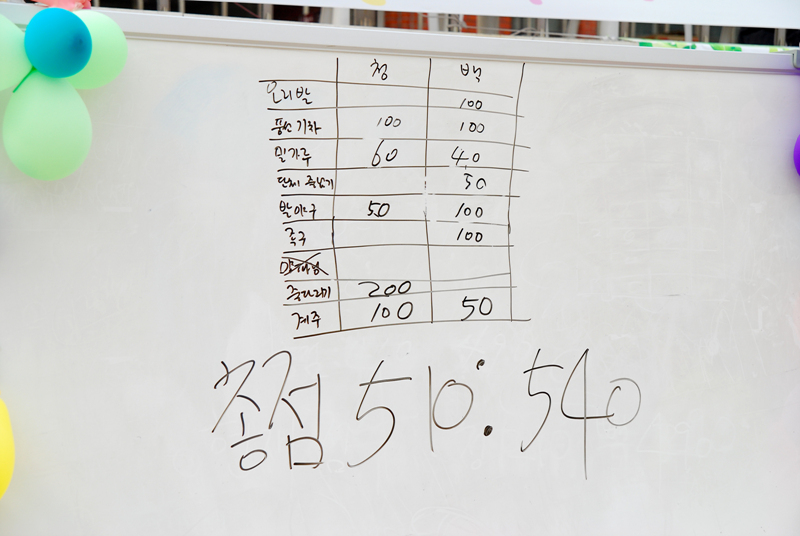 청 백
오리발 100
풍선기차 100 100
밀가루 60 40
단체 줄넘기 50
발야구 50 100
족구 100
줄다리기 200
계주 100 50
총점 510:540